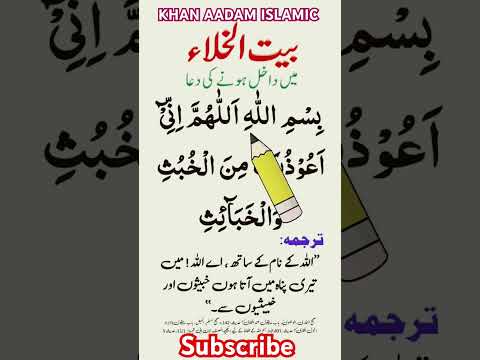 KHAN AADAM ISLAMIC
بیت الخلاء
میں داخل ہونے کی دعا
بِسْمِ اللّٰهِ اَللّٰهُمَّ اِنِّیْۤ
مِنَ الْخُبُثِ
وَالْخَبَآئِثِ
ترجمہ:
”اللہ کے نام کے ساتھ، اے اللہ! میں
تیری پناہ میں آتا ہوں خبیثوں اور
خبیثیوں سے۔“
Subscribe